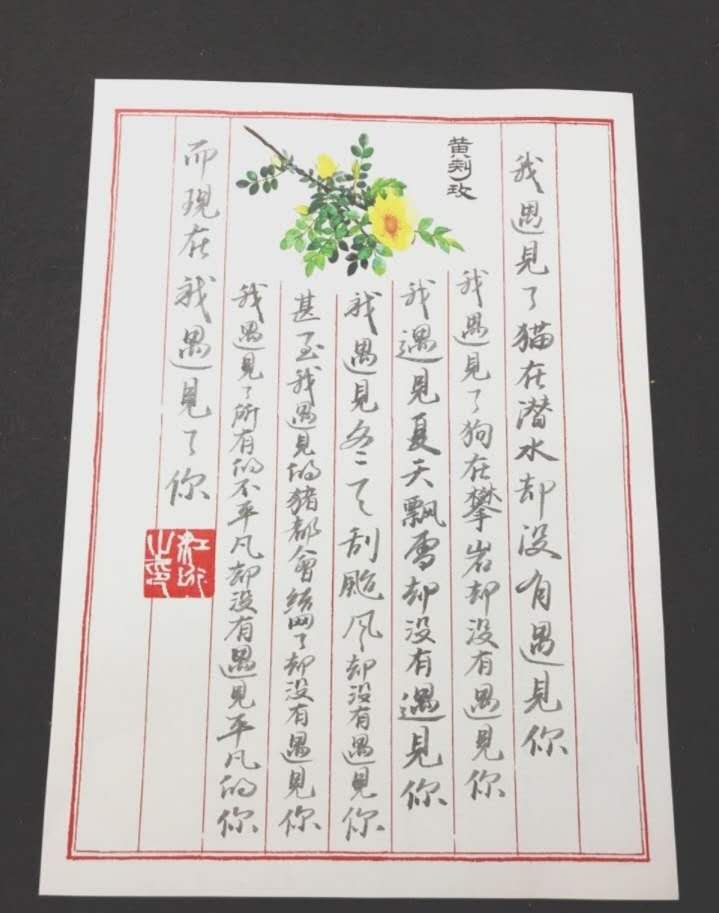 黄刺玫
我遇見了猫在潜水却没有遇見你
我遇見了狗在攀岩却没有遇見你
我遇見夏天飘雪却没有遇見你
我遇見冬天刮颱风却没有遇見你
甚至我遇見的猪都會结网了却没有遇見你
我遇見了所有的不平凡却没有遇見平凡的你
而現在我遇見了你